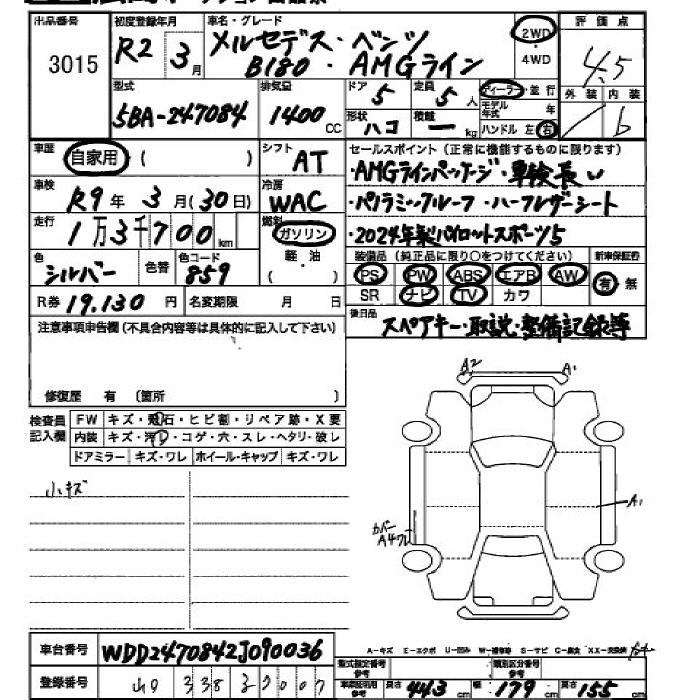 出品番号 初度登録年月 車名・グレード 評価点
3015 R2年 3月 メルセデス・ベンツ 2WD
B180・AMGライン 4WD 4.5
型式 排気量 ドア 定員 ディーラー・並行 外装 内装
5BA-247084 1400CC 5 5人 モデル年式 年
形状 ハコ 積載 ー kg ハンドル 左 右 b
車歴 自家用 ( ) シフト AT セールスポイント(正常に機能するものに限ります)
・AMGラインパッケージ・車検長い
車検 R9年 3月(30日) 冷房 WAC ・パノラミックルーフ・ハーフレザーシート
走行 1万3千700km 燃料 ガソリン ・2024年製パイロットスポーツ5
軽・油 装備品(純正品に限り○をつけてください) 新車保証書
色 シルバー 色替 色コード 859 ( ) PS PW ABS エアB AW 有 無
R券 19,130円 名変期限 月 日 SR ナビ TV カワ
注意事項申告欄(不具合内容等は具体的に記入して下さい) 後日品 スペアキー・取説・整備記録等
修復歴 有 (箇所 )
A2 A1
検査員 FW キズ・飛石・ヒビ割・リペア跡・X要
記入欄 内装 キズ・汚レ・コゲ・穴・スレ・ヘタリ・破レ
ドアミラー キズ・ワレ ホイール・キャップ キズ・ワレ
小キズ
A1
カバー
A4ワレ
車台番号 WDD2470842J090036 A-キズ E-エクボ U-凹み W-補修跡 S-サビ C-腐食 XX-交換済
型式指定番号 参考 類別区分番号 参考
登録番号 長さ 443cm 幅 179cm 高さ 155cm